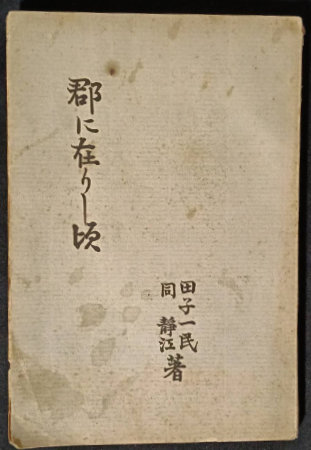 郡に在りし頃
田子一民
同 靜江
著